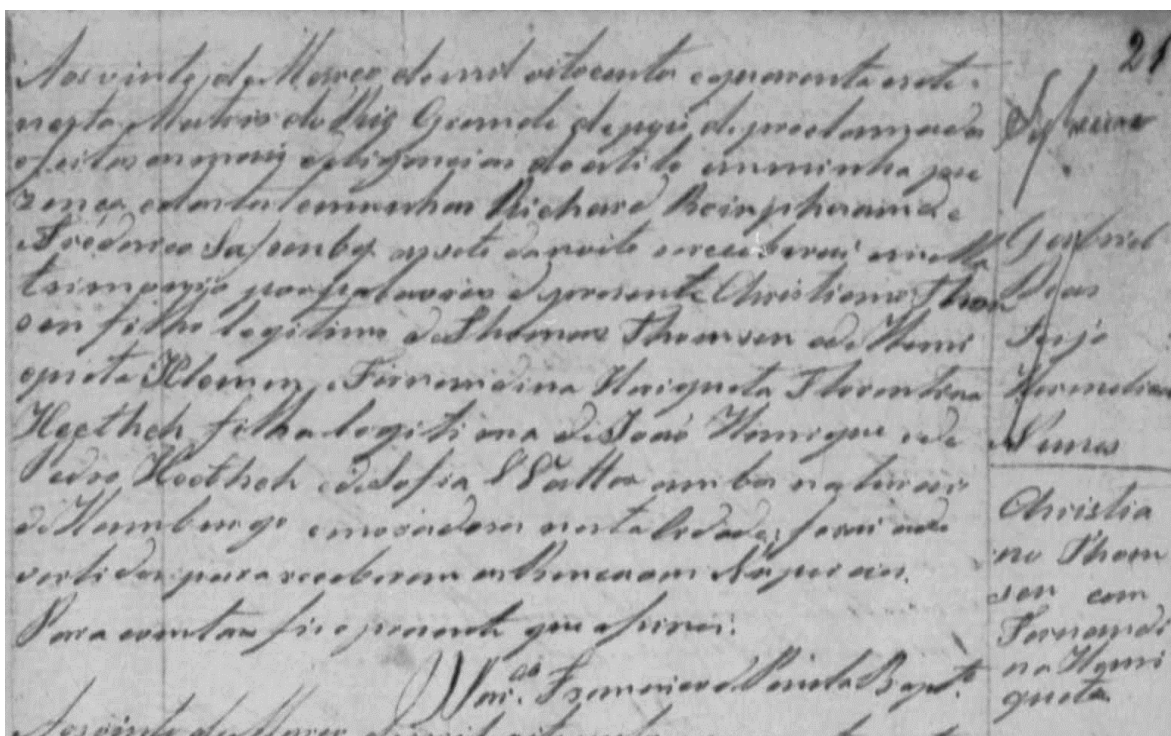 21
Aos vinte de Março de mil oitocentos e quarenta e sete
nesta Matris do Rio Grande depois de proclamados
e feitas as mais deligencias do estilo em minha pre
zença e das testemunhas Richard e
Frederico as sete da noite se receberaõ em Ma
trimonio por palavras de presente Christiano Thom
sen filho legitimo de Thomas Thomsen e de Henri
queta Klemen, e Fernandina Hariqueta Florentina
Heethch filha legitima de Joaõ Henrique e de
Pedro Heethch e de Sofia ambos naturais
de Hamburgo e moradores nesta Cidade; foraõ ad
vertidos para receberem as Bençaons Nupciais.
Para constar fis o presente que assinei.
Francisco de Paula Bapt.
Gabriel
Dias
Feijo
Nunes
Christia
no Thom
sen com
Fernandi
na Henri
queta
Aos vinte de Março de mil oitocentos